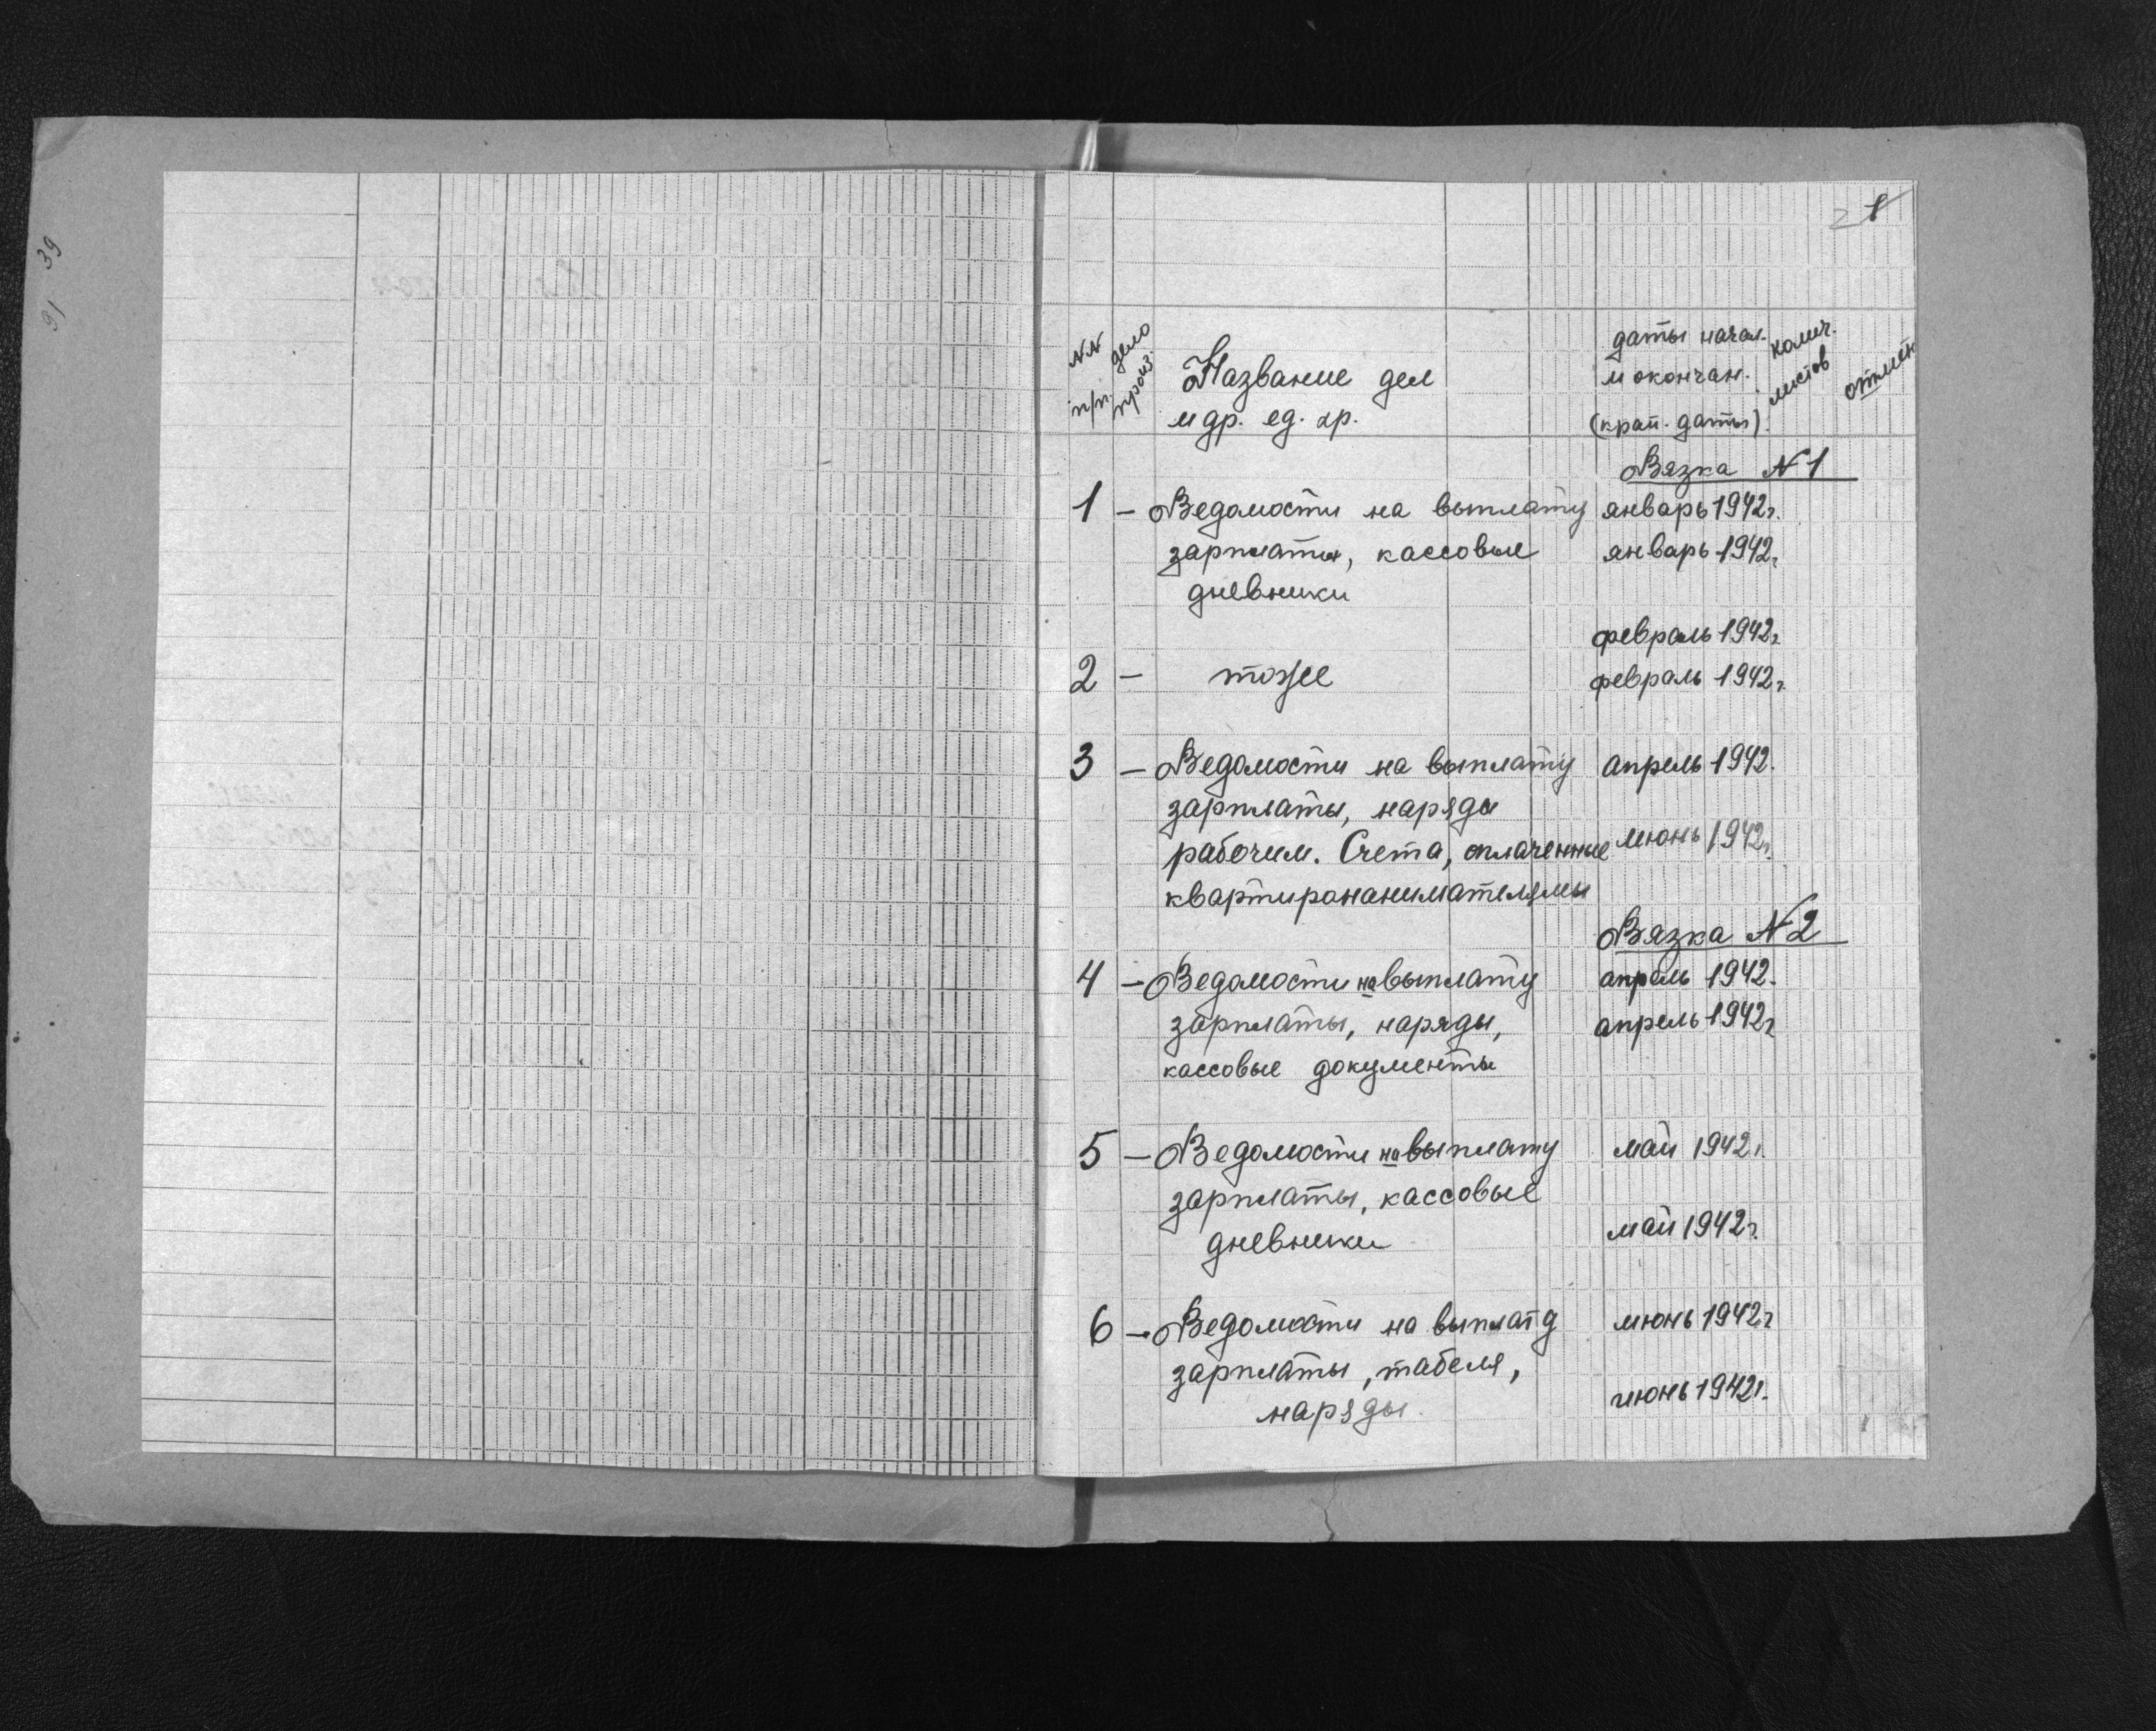 39
91
2 1
NN п/п.
дело произ.
Название дел
и др. ед. хр.
даты начал.
и окончан.
(край. даты)
колич. листов
отмет
Вязка N 1
1 – Ведомости на выплату январь 1942г.
зарплаты, кассовые январь 1942г
дневники
февраль 1942г
2 – тоже февраль 1942г.
3 – Ведомости на выплату апрель 1942.
зарплаты, наряды
рабочим. Счета, оплаченные июнь 1942г.
квартиронанимателями
Вязка N 2
4 – Ведомости на выплату апрель 1942.
зарплаты, наряды, апрель 1942г
кассовые документы
5 – Ведомости на выплату май 1942г.
зарплаты, кассовые
дневники май 1942г.
6 – Ведомости на выплату июнь 1942г
зарплаты, табеля,
наряды. июнь 1942г.